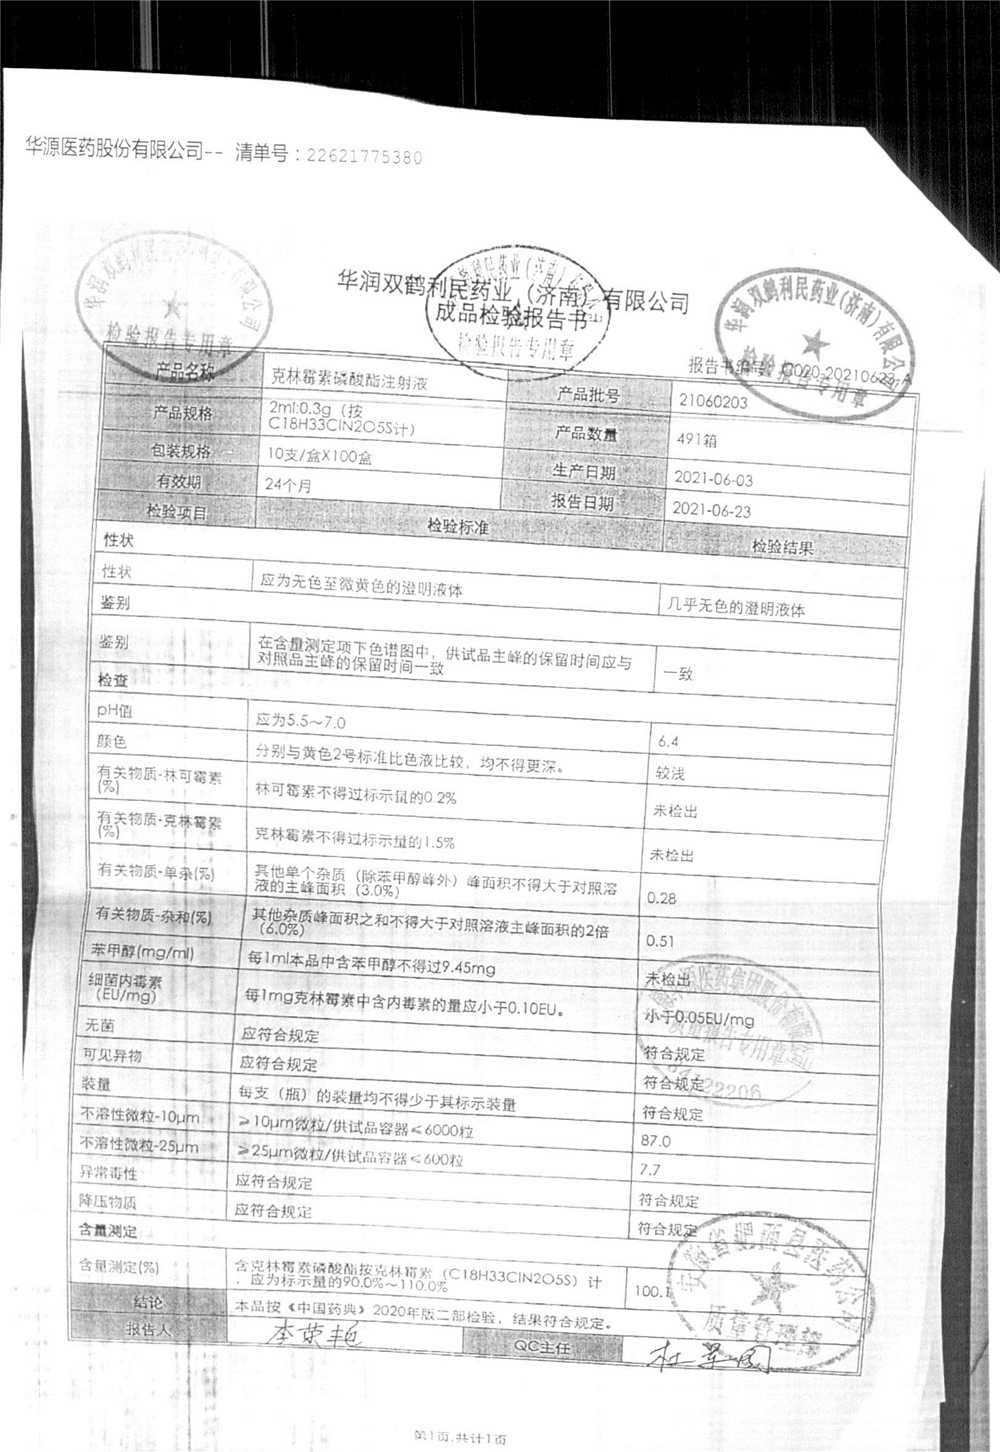 华源医药股份有限公司-- 清单号：22621775380
华润双鹤利民药业（济南）有限公司
成品检验报告书
检验报告专用章
检验报告专用章
华润双鹤利民药业(济南)有限公司
检验报告专用章
报告书编号
产品名称 克林霉素磷酸酯注射液 产品批号 21060203
产品规格 2ml:0.3g（按
C18H33ClN2O5S计） 产品数量 491箱
包装规格 10支/盒X100盒 生产日期 2021-06-03
有效期 24个月 报告日期 2021-06-23
检验项目 检验标准 检验结果
性状
性状 应为无色至微黄色的澄明液体 几乎无色的澄明液体
鉴别
鉴别 在含量测定项下色谱图中，供试品主峰的保留时间应与
对照品主峰的保留时间一致 一致
检查
pH值 应为5.5～7.0 6.4
颜色 分别与黄色2号标准比色液比较，均不得更深。 较浅
有关物质-林可霉素
(%) 林可霉素不得过标示量的0.2% 未检出
有关物质-克林霉素
(%) 克林霉素不得过标示量的1.5% 未检出
有关物质-单杂(%) 其他单个杂质（除苯甲醇峰外）峰面积不得大于对照溶
液的主峰面积（3.0%） 0.28
有关物质-杂和(%) 其他杂质峰面积之和不得大于对照溶液主峰面积的2倍
（6.0%） 0.51
苯甲醇(mg/ml) 每1ml本品中含苯甲醇不得过9.45mg 未检出
细菌内毒素
（EU/mg） 每1mg克林霉素中含内毒素的量应小于0.10EU。 小于0.05EU/mg
无菌 应符合规定 符合规定
可见异物 应符合规定 符合规定
装量 每支（瓶）的装量均不得少于其标示装量 符合规定
不溶性微粒-10μm ≥10μm微粒/供试品容器≤6000粒 87.0
不溶性微粒-25μm ≥25μm微粒/供试品容器≤600粒 7.7
异常毒性 应符合规定 符合规定
降压物质 应符合规定 符合规定
含量测定
含量测定(%) 含克林霉素磷酸酯按克林霉素（C18H33ClN2O5S）计
，应为标示量的90.0%～110.0% 100.1
结论 本品按《中国药典》2020年版二部检验，结果符合规定。
报告人 李荣艳 QC主任
安徽省肥西县医药公司
质量管理部
第1页,共计1页